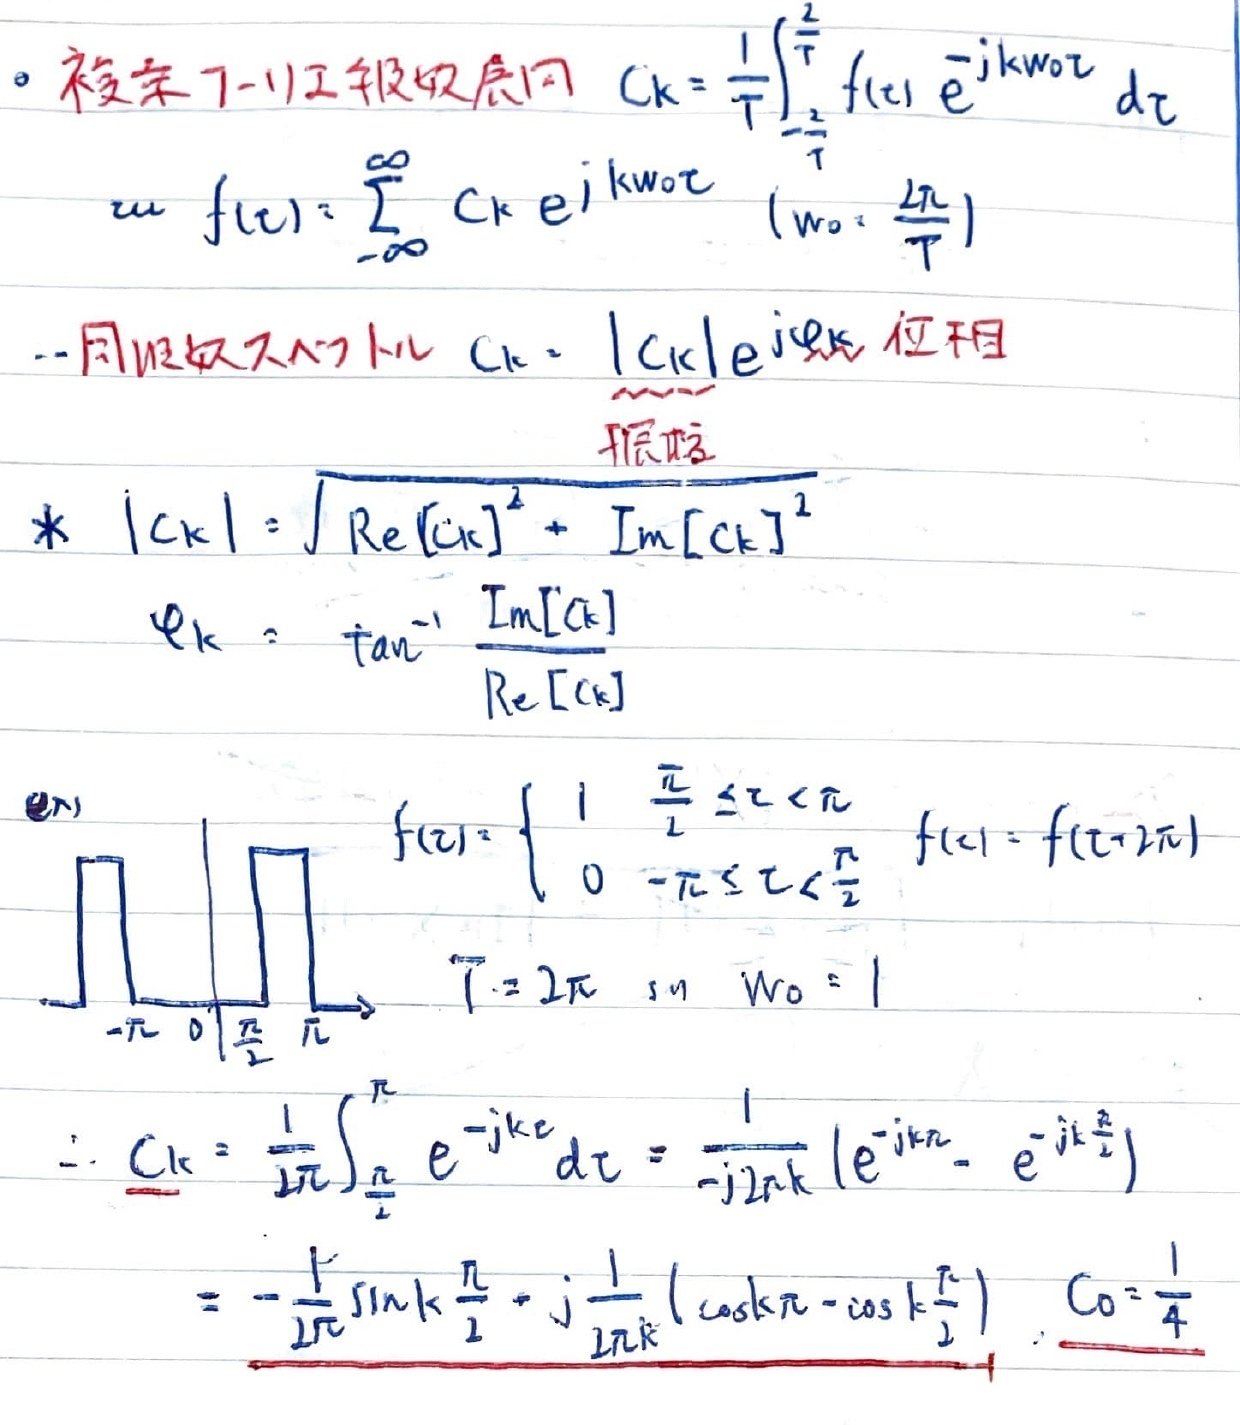 • 複素フーリエ級数展開 Ck = 1/T ∫_{-2/T}^{2/T} f(τ) e^{-jkw₀τ} dτ
f(τ) = Σ_{-∞}^{∞} Ck e^{jkw₀τ} (w₀ = 2π/T)
-- 周波数スペクトル Ck = |Ck| e^{jφk} 位相
振幅
* |Ck| = √(Re[Ck]² + Im[Ck]²)
φk = tan⁻¹ Im[Ck]/Re[Ck]
ex) f(τ) = { 1 π/2 ≤ τ < π
0 -π ≤ τ < π/2 f(τ) = f(τ+2π)
T = 2π より w₀ = 1
-π 0 π/2 π
∴ Ck = 1/2π ∫_{π/2}^{π} e^{-jkτ} dτ = 1/(-j2πk) (e^{-jkπ} - e^{-jkπ/2})
= - 1/2π sin k π/2 + j 1/2πk (cos kπ - cos k π/2) . C₀ = 1/4